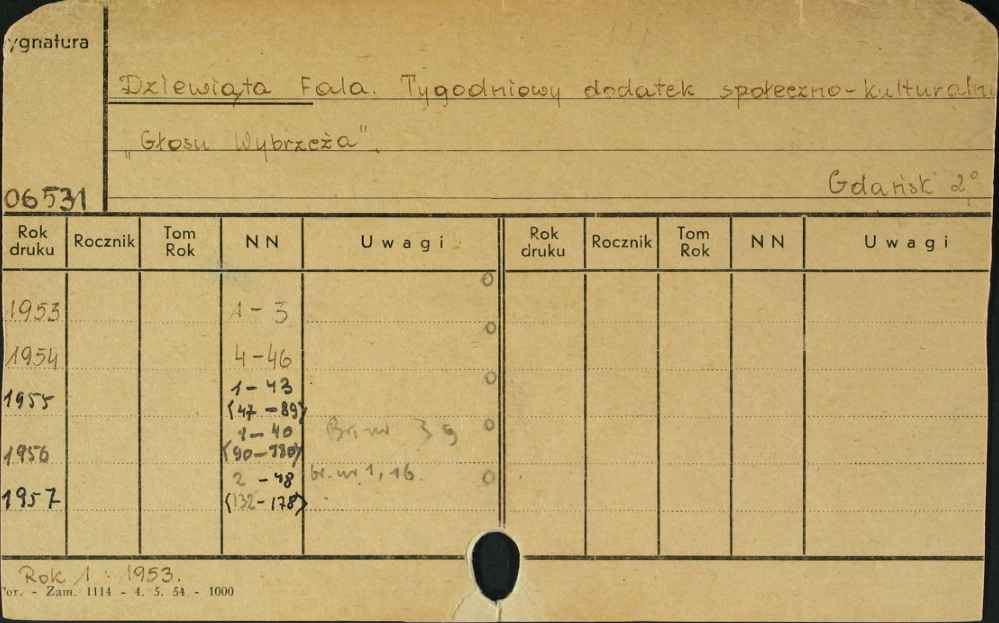 ygnatura
Dziewiąta Fala. Tygodniowy dodatek społeczno-kulturaln
„Głosu Wybrzeża".
Gdańsk 2°
06531
Rok druku Rocznik Tom Rok NN Uwagi Rok druku Rocznik Tom Rok NN Uwagi
1953 1-3
1954 4-46
1955 1-43
(47-89)
1956 1-40 Br. nr 39
(90-130)
1957 2-48 br. nr 1, 16.
(132-178)
Rok 1: 1953.
or. - Zam. 1114 - 4. 5. 54 - 1000